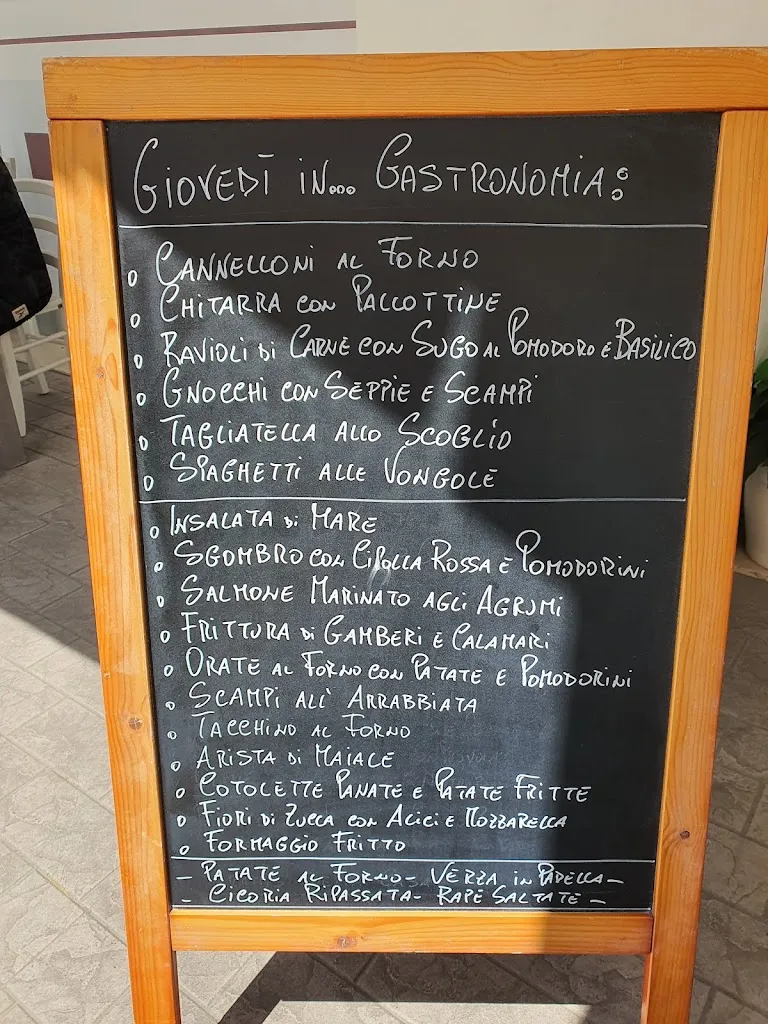 GIOVEDÌ IN... GASTRONOMIA:
CANNELLONI AL FORNO
CHITARRA CON PALLOTTINE
RAVIOLI DI CARNE CON SUGO AL POMODORO E BASILICO
GNOCCHI CON SEPPIE E SCAMPI
TAGLIATELLA ALLO SCOGLIO
SPAGHETTI ALLE VONGOLE
INSALATA DI MARE
SGOMBRO CON CIPOLLA ROSSA E POMODORINI
SALMONE MARINATO AGLI AGRUMI
FRITTURA DI GAMBERI E CALAMARI
ORATE AL FORNO CON PATATE E POMODORINI
SCAMPI ALL' ARRABBIATA
TACCHINO AL FORNO
ARISTA DI MAIALE
COTOLETTE PANATE E PATATE FRITTE
FIORI DI ZUCCA CON ALICI E MOZZARELLA
FORMAGGIO FRITTO
- PATATE AL FORNO - VERZA IN PADELLA -
- CICORIA RIPASSATA - RAPE SALTATE -